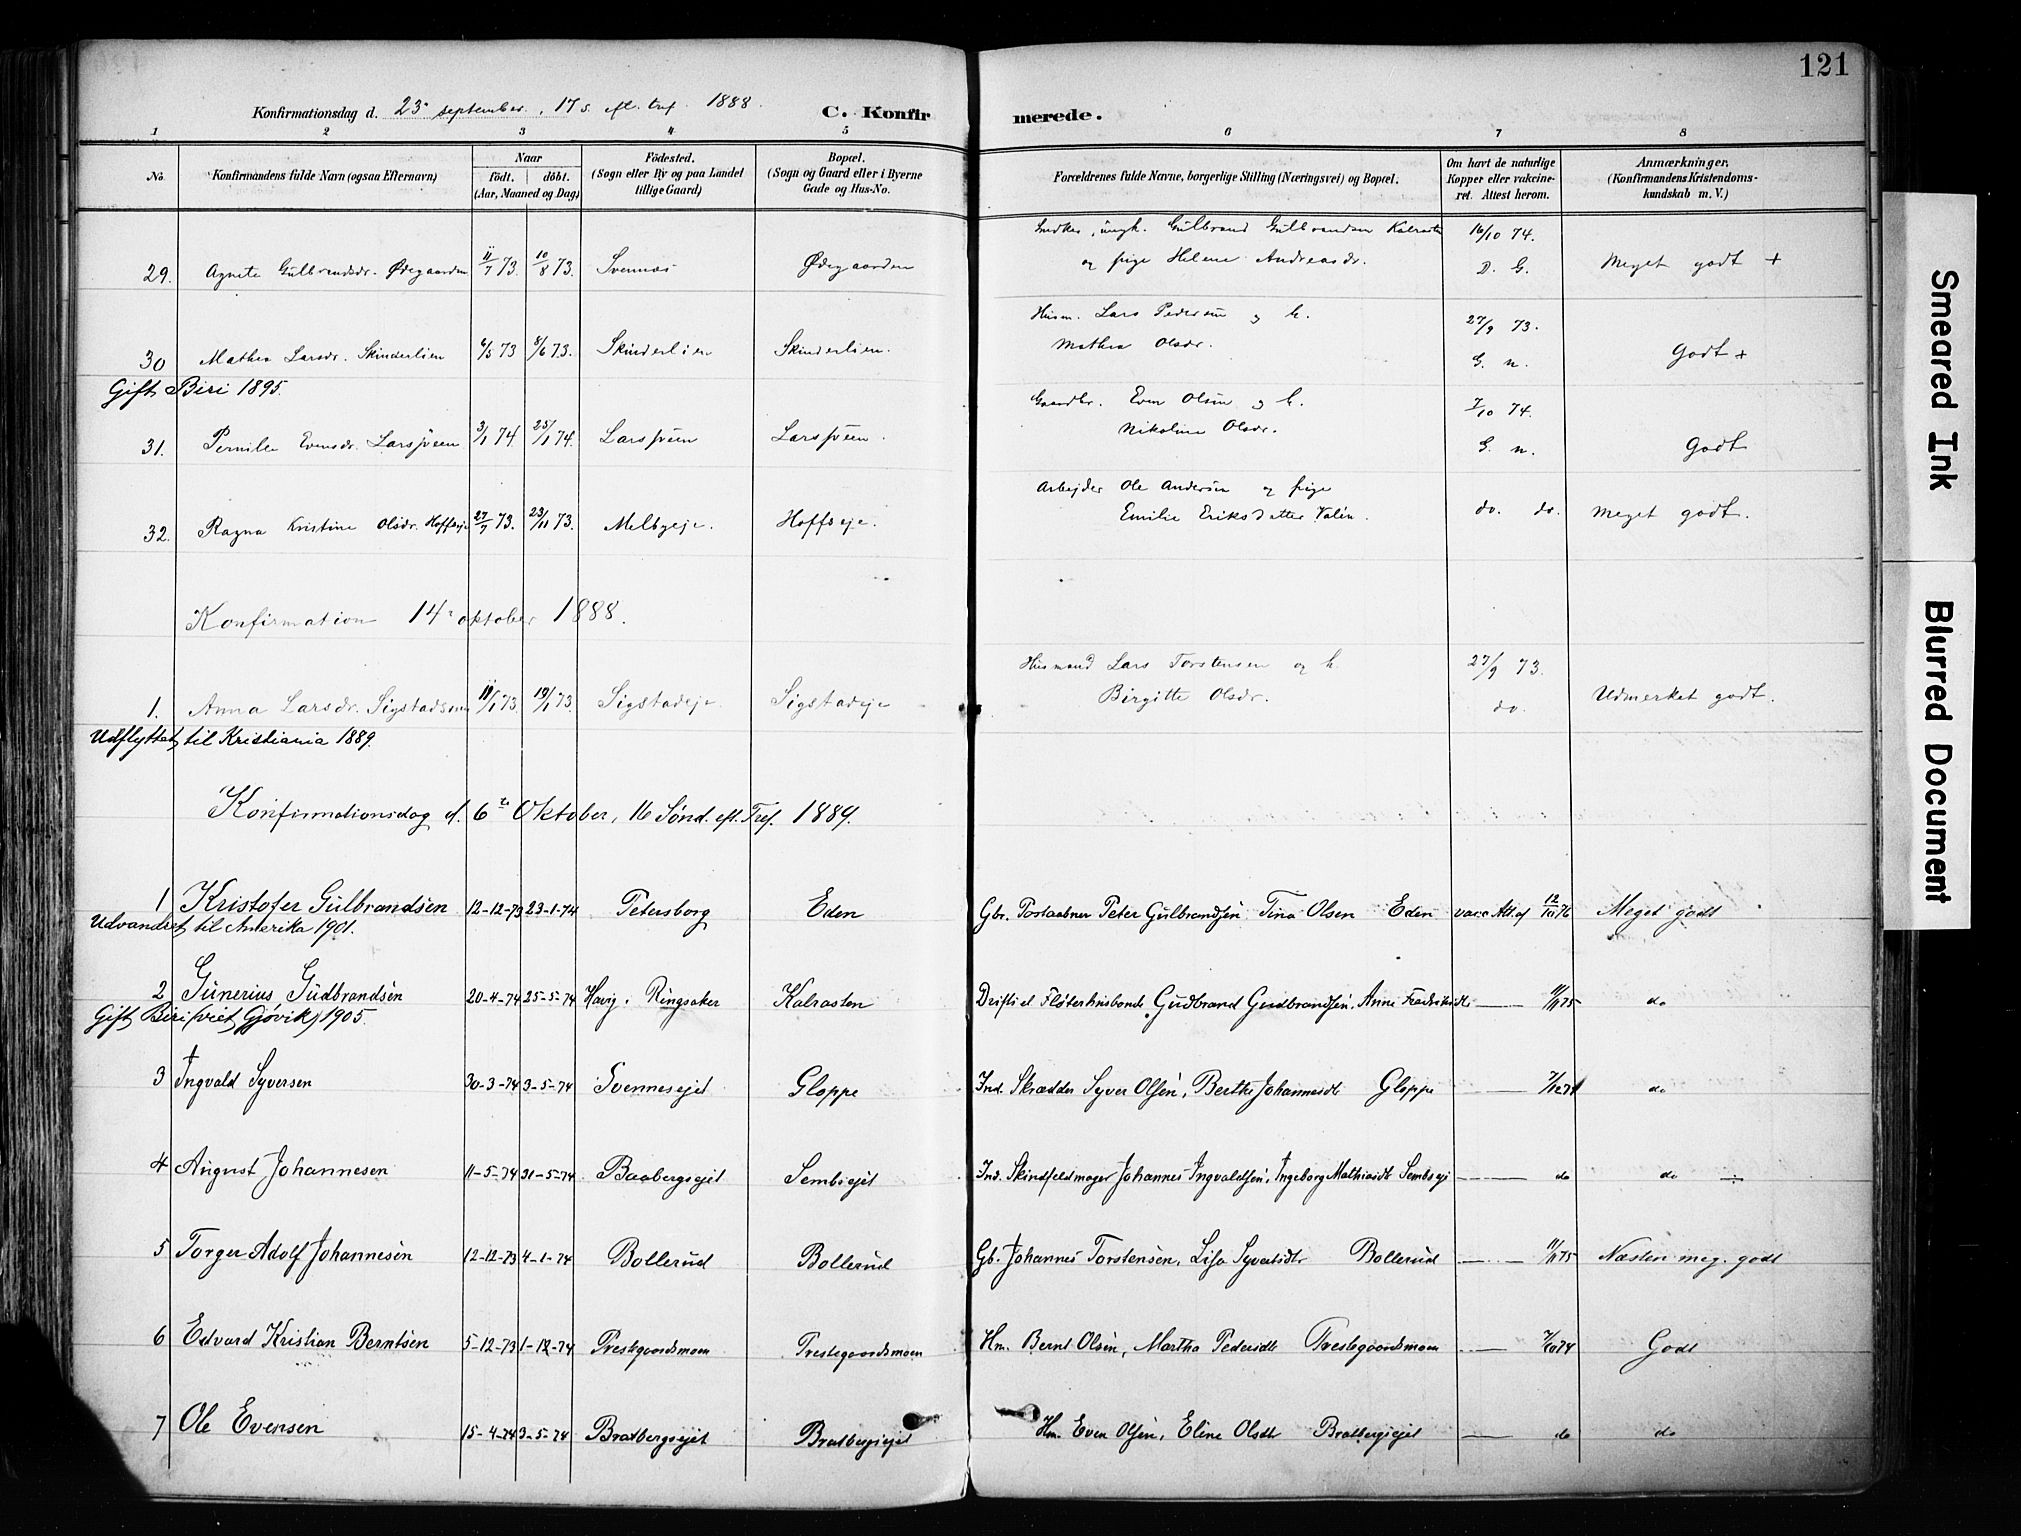 121
Konfirmationsdag d. 23 september, 17 s. eft. tref. 1888.
C. Konfirmerede.
1 2 3 4 5 6 7 8
No. Konfirmandens fulde Navn (ogsaa Efternavn) Naar födt. döbt. (Aar, Maaned og Dag) Födested. (Sogn eller By og paa Landet tillige Gaard) Bopæl. (Sogn og Gaard eller i Byerne Gade og Hus-No. Forældrenes fulde Navne, borgerlige Stilling (Næringsvei) og Bopæl. Om havt de naturlige Kopper eller vakcineret. Attest herom. Anmærkninger. (Konfirmandens Kristendomskundskab m. V.)
Gulbrand Gulbrandsen Kalrasten 16/10 74.
29. Agnete Gulbrandsdr. Ødegaarden 11/7 73. 10/8 73. Svennæs Ødegaarden og pige Helene Andreasdr. D. G. Meget godt +
Husm. Lars Pedersen og h. 27/9 73.
30 Mathea Larsdr. Skinderlien 6/5 73 8/6 73. Skinderlien Skinderlien. Mathea Olsdr. G. n. Godt +
Gift Biri 1895.
Gaardbr. Even Olsen og h. 7/10 74.
31. Pernille Evensdr. Larsveen 3/1 74. 25/1 74. Larsveen Larsveen. Nikoline Olsdr. G. n. Godt
Arbejder Ole Andersen og pige
32. Ragna Kristine Olsdr. Hoffseje 27/7 73. 23/11 73. Melbyeje. Hoffseje. Emilie Eriksdatter Valen. do. do. Meget godt.
Konfirmation 14 oktober 1888.
Husmand Lars Torstensen og h. 27/9 73.
1. Anna Larsdr. Sigstads 11/1 73. 19/1 73. Sigstadeje Sigstadeje Birgitte Olsdr. do. Udmerket godt.
Udflyttet til Kristiania 1889.
Konfirmationsdag d. 6te Oktober, 16 Sønd. eft. Tref. 1889.
1 Kristofer Gulbrandsen 12-12-73 23-1-74 Petersborg Eden Gbr. Postaabner Peter Gulbrandsen Tina Olsen Eden vacc Att. af 12/10 76 Meget godt
Udvandret til Amerika 1901.
2 Gunerius Gudbrandsen 20-4-74 25-5-74 Havig. Ringsaker Kalrasten Fløterhusbonde Gudbrand Gudbrandsen. Anne Fredriksdtr —— 11/11 75 do
Gift Biri (viet Gjøvik) 1905.
3 Ingvald Syversen 30-3-74 3-5-74 Svennesejet Gloppe Ind. Skrædder Syver Olsen, Berthe Johannesdtr Gloppe —— do
4 August Johannesen 11-5-74 31-5-74 Baabergsejet Sembsejet Ind. Skindfeldmager Johannes Ingvaldsen, Ingeborg Mathiasdtr Sembsej —— do do
5 Torger Adolf Johannesen 12-12-73 4-1-74 Bollerud Bollerud Gb. Johannes Torstensen, Lisa Syvertsdtr Bollerud —— 11/11 75 Næsten meg. godt
6 Edvard Kristian Berntsen 5-12-73 1-12-74 Prestegaardsmoen Prestegaardsmoen Hm. Bernt Olsen, Martha Pedersdtr Prestegaardsmoen —— 7/10 74 Godt
7 Ole Evensen 15-4-74 3-5-74 Bratbergsejet Bratbergsejet Hm. Even Olsen, Eline Olsdtr Bratbergsejet —— do do
Smeared Ink
Blurred Document